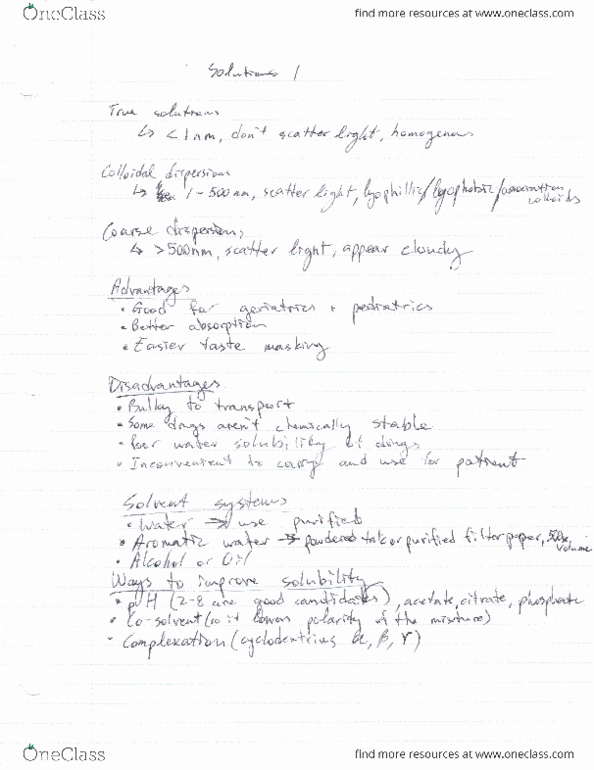 OneClass
find more resources at www.oneclass.com
Solutions 1
True solutions
↳ <1nm, don't scatter light, homogenous
Colloidal dispersion
↳ 1-500nm, scatter light, lyophillic/lyophobic/association colloids
Coarse dispersion,
↳ >500nm, scatter light, appear cloudy
Advantages
• Good for geriatrics + pediatrics
• Better absorption
• Easier taste masking
Disadvantages
• Bulky to transport
• Some drugs aren't chemically stable
• Poor water solubility of drugs
• Inconvenient to carry and use for patient
Solvent systems
• Water → use purified
• Aromatic water → powdered talc or purified filter paper, 500x volume
• Alcohol or Oil
Ways to improve solubility
• pH (2-8 are good candidates), acetate, citrate, phosphate
• Co-solvent (so it lowers polarity of the mixture)
• Complexation (cyclodextrins α, β, γ)
OneClass
find more resources at www.oneclass.com